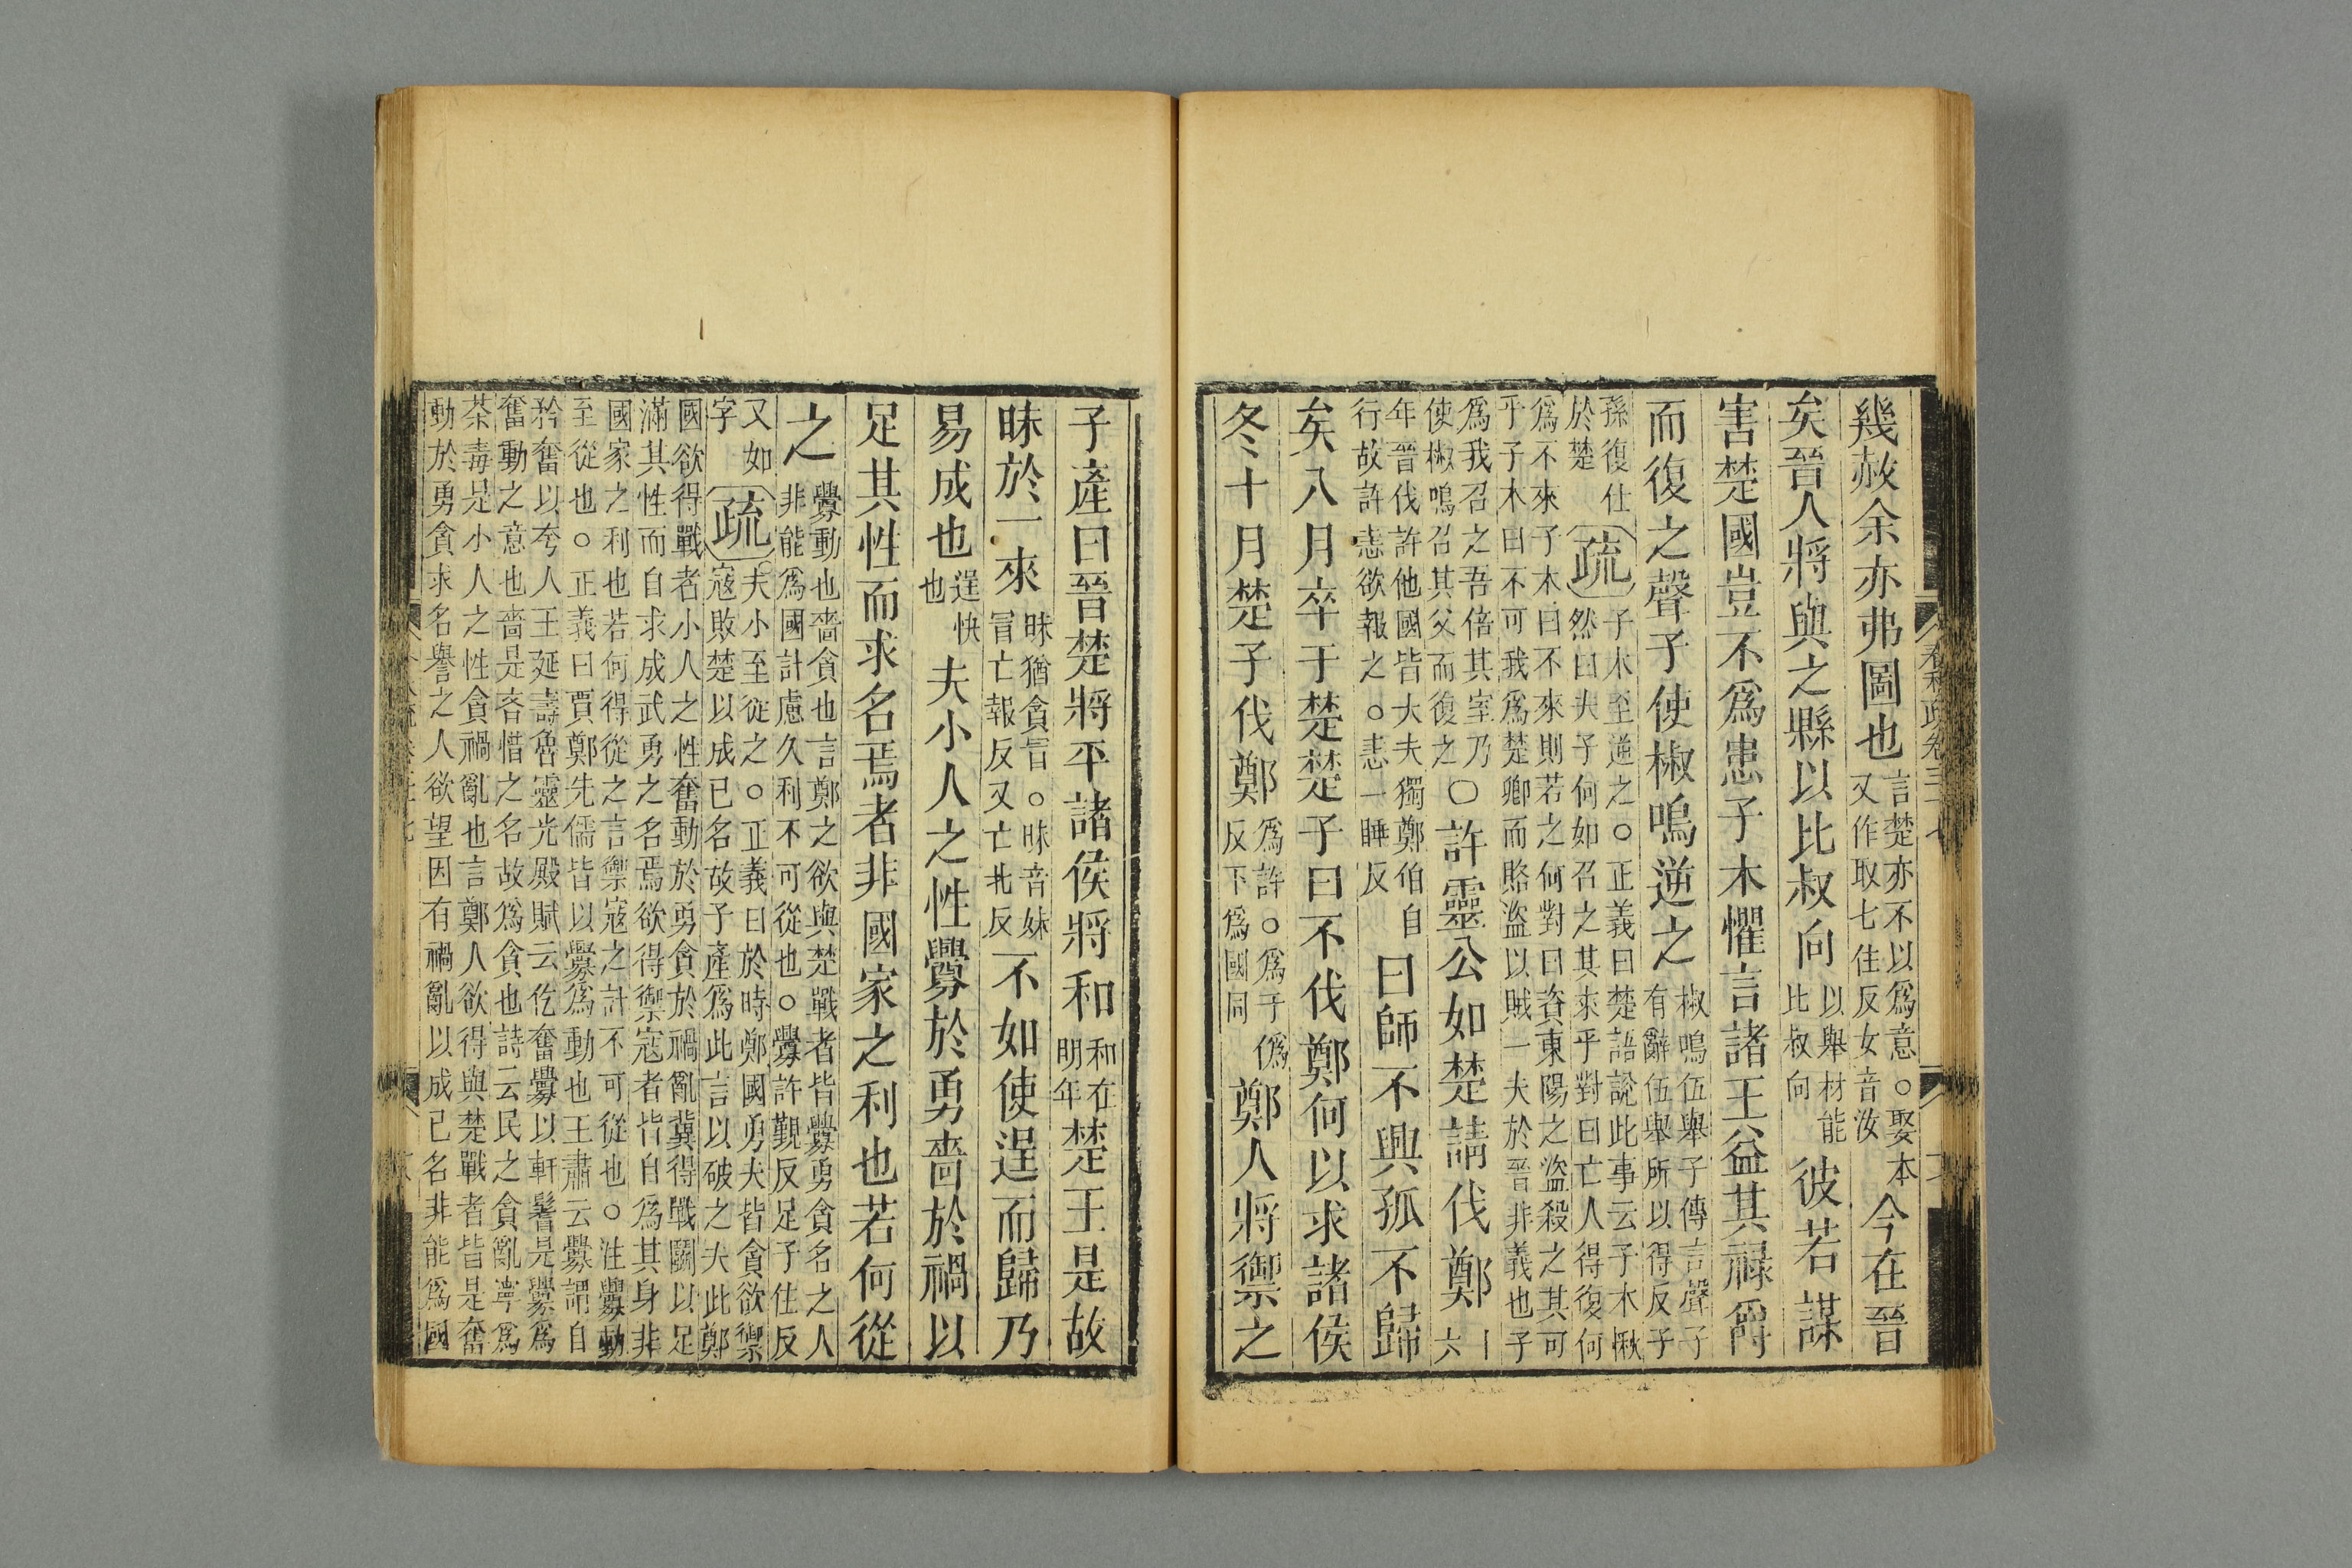 幾赦余亦弗圖也
言楚亦不以爲意○娶本
又作取七住反女音汝
今在晉
矣晉人將與之縣以比叔向
以舉材能
比叔向
彼若謀
害楚國豈不爲患子木懼言諸王益其祿爵
而復之聲子使椒鳴逆之
椒鳴伍舉子傳言聲子
有辭伍舉所以得反子
孫復仕
於楚
疏
子木至逆之○正義曰楚語說此事云子木愀
然曰夫子何如召之其來乎對曰亡人得復何
爲不來子木曰不來則若之何對曰資東陽之盜殺之其可
乎子木曰不可我爲楚卿而賂盜以賊一夫於晉非義也子
爲我召之吾倍其室乃
使椒鳴召其父而復之
○許靈公如楚請伐鄭
六
年晉伐許他國皆大夫獨鄭伯自
行故許恚欲報之○恚一睡反
曰師不興孤不歸
矣八月卒于楚楚子曰不伐鄭何以求諸侯
冬十月楚子伐鄭
爲許○爲于僞
反下爲國同
鄭人將禦之
子產曰晉楚將平諸侯將和
和在
明年
楚王是故
昧於一來
昧猶貪冒○昧音妹
冒亡報反又亡北反
不如使逞而歸乃
易成也
逞快
也
夫小人之性釁於勇嗇於禍以
足其性而求名焉者非國家之利也若何從
之
釁動也嗇貪也言鄭之欲與楚戰者皆釁勇貪名之人
非能爲國計慮久利不可從也○釁許覲反足子住反
又如
字
疏
夫小至從之○正義曰於時鄭國勇夫皆貪欲禦
寇敗楚以成已名故子產爲此言以破之夫此鄭
國欲得戰者小人之性奮動於勇貪於禍亂冀得戰鬭以足
滿其性而自求成武勇之名焉欲得禦寇者皆自爲其身非
國家之利也若何得從之言禦寇之計不可從也○注釁動
至從也○正義曰賈鄭先儒皆以釁爲動也王肅云釁謂自
矜奮以夸人王延壽魯靈光殿賦云仡奮釁以軒鬐是釁爲
奮動之意也嗇是吝惜之名故爲貪也詩云民之貪亂寧爲
荼毒是小人之性貪禍亂也言鄭人欲得與楚戰者皆是奮
動於勇貪求名譽之人欲望因有禍亂以成已名非能爲國